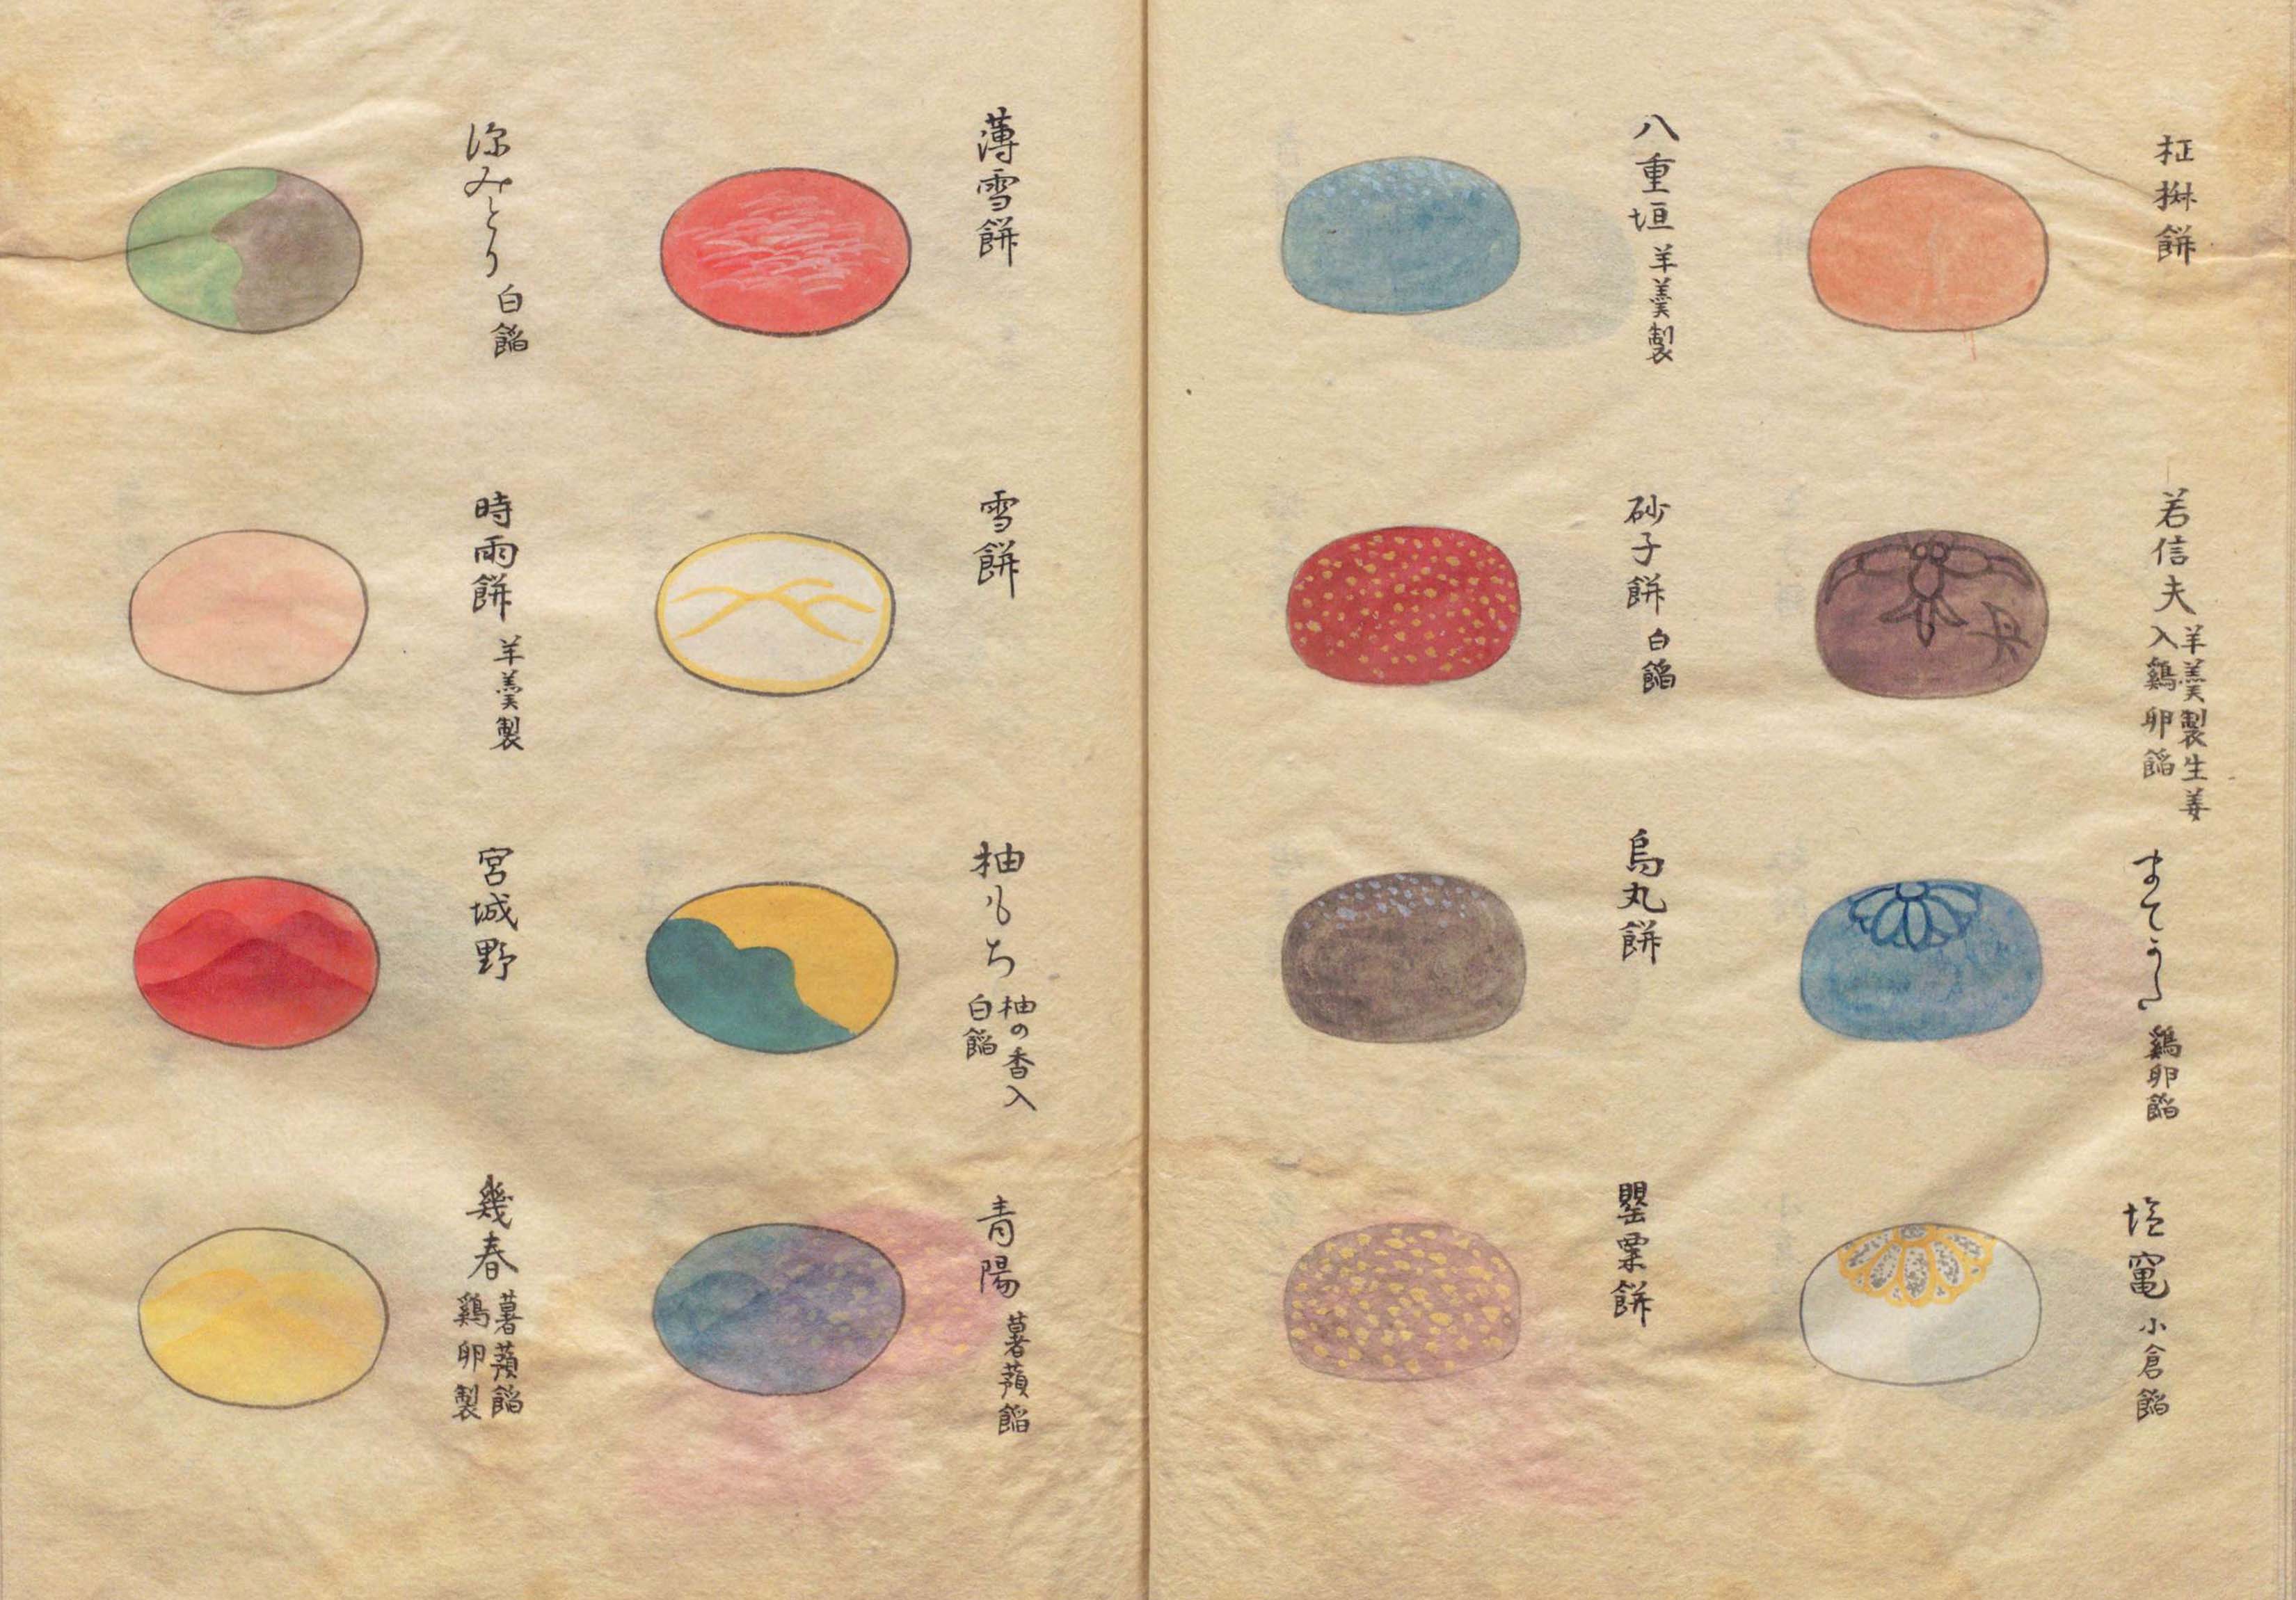 若信夫
羊羹製生姜
入鶏卵餡
鶏卵餡
塩竃 小倉餡
八重垣 羊羹製
砂子餅 白餡
烏丸餅
罌粟餅
薄雪餅
雪餅
柚もち
柚の香入
白餡
青陽 薯蕷餡
深みとり 白餡
時雨餅 羊羹製
宮城野
幾春
薯蕷餡
鶏卵製